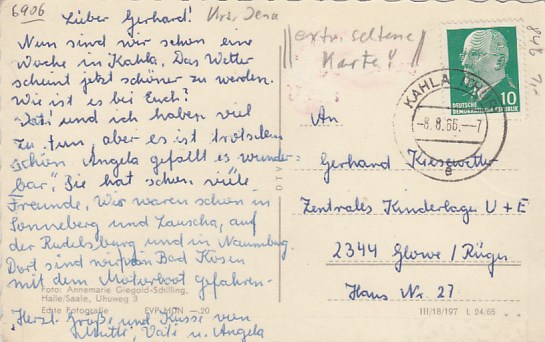 6906
Lieber Gerhard! Krs. Jena
Nun sind wir schon eine
Woche in Kahla. Das Wetter
scheint jetzt schöner zu werden.
Wie ist es bei Euch?
Vati und ich haben viel
zu tun, aber es ist trotzdem
schön. Angela gefällt es wunder-
bar. Sie hat schon viele
Freunde. Wir waren schon in
Sonneberg und Lauscha, auf
der Rudelsburg und in Naumburg.
Dort sind wir von Bad Kösen
mit dem Motorboot gefahren.
Foto: Annemarie Giegold-Schilling,
Halle/Saale, Uhuweg 3
Echte Fotografie EVP MDN —.20
Herzl. Grüße und Küsse von
Mutti, Vati u. Angela
extr. seltene
Karte!
DEUTSCHE
DEMOKRATISCHE REPUBLIK
10
KAHLA
-8.8.66.-7
a
An
Gerhard Kiesewetter
Zentrales Kinderlager V+E
2344 Glowe/Rügen
Haus Nr. 27
III/18/197 L 24/65